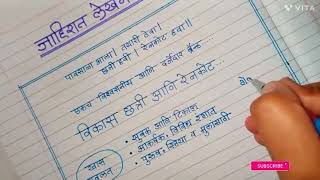 जाहिरात लेखन
पावसाळा आला। तयारी ठेवा।
छत्री हवी। रेनकोट हवा॥
एकच विश्वसनीय आणि दर्जेदार ब्रँड
विकास छत्री आणि रेनकोट...
खास
• सुबक आणि टिकाऊ
• आकर्षक, विविध रंगात
• पुरुष, स्त्रिया व मुलांसाठी
VITA
SUBSCRIBE